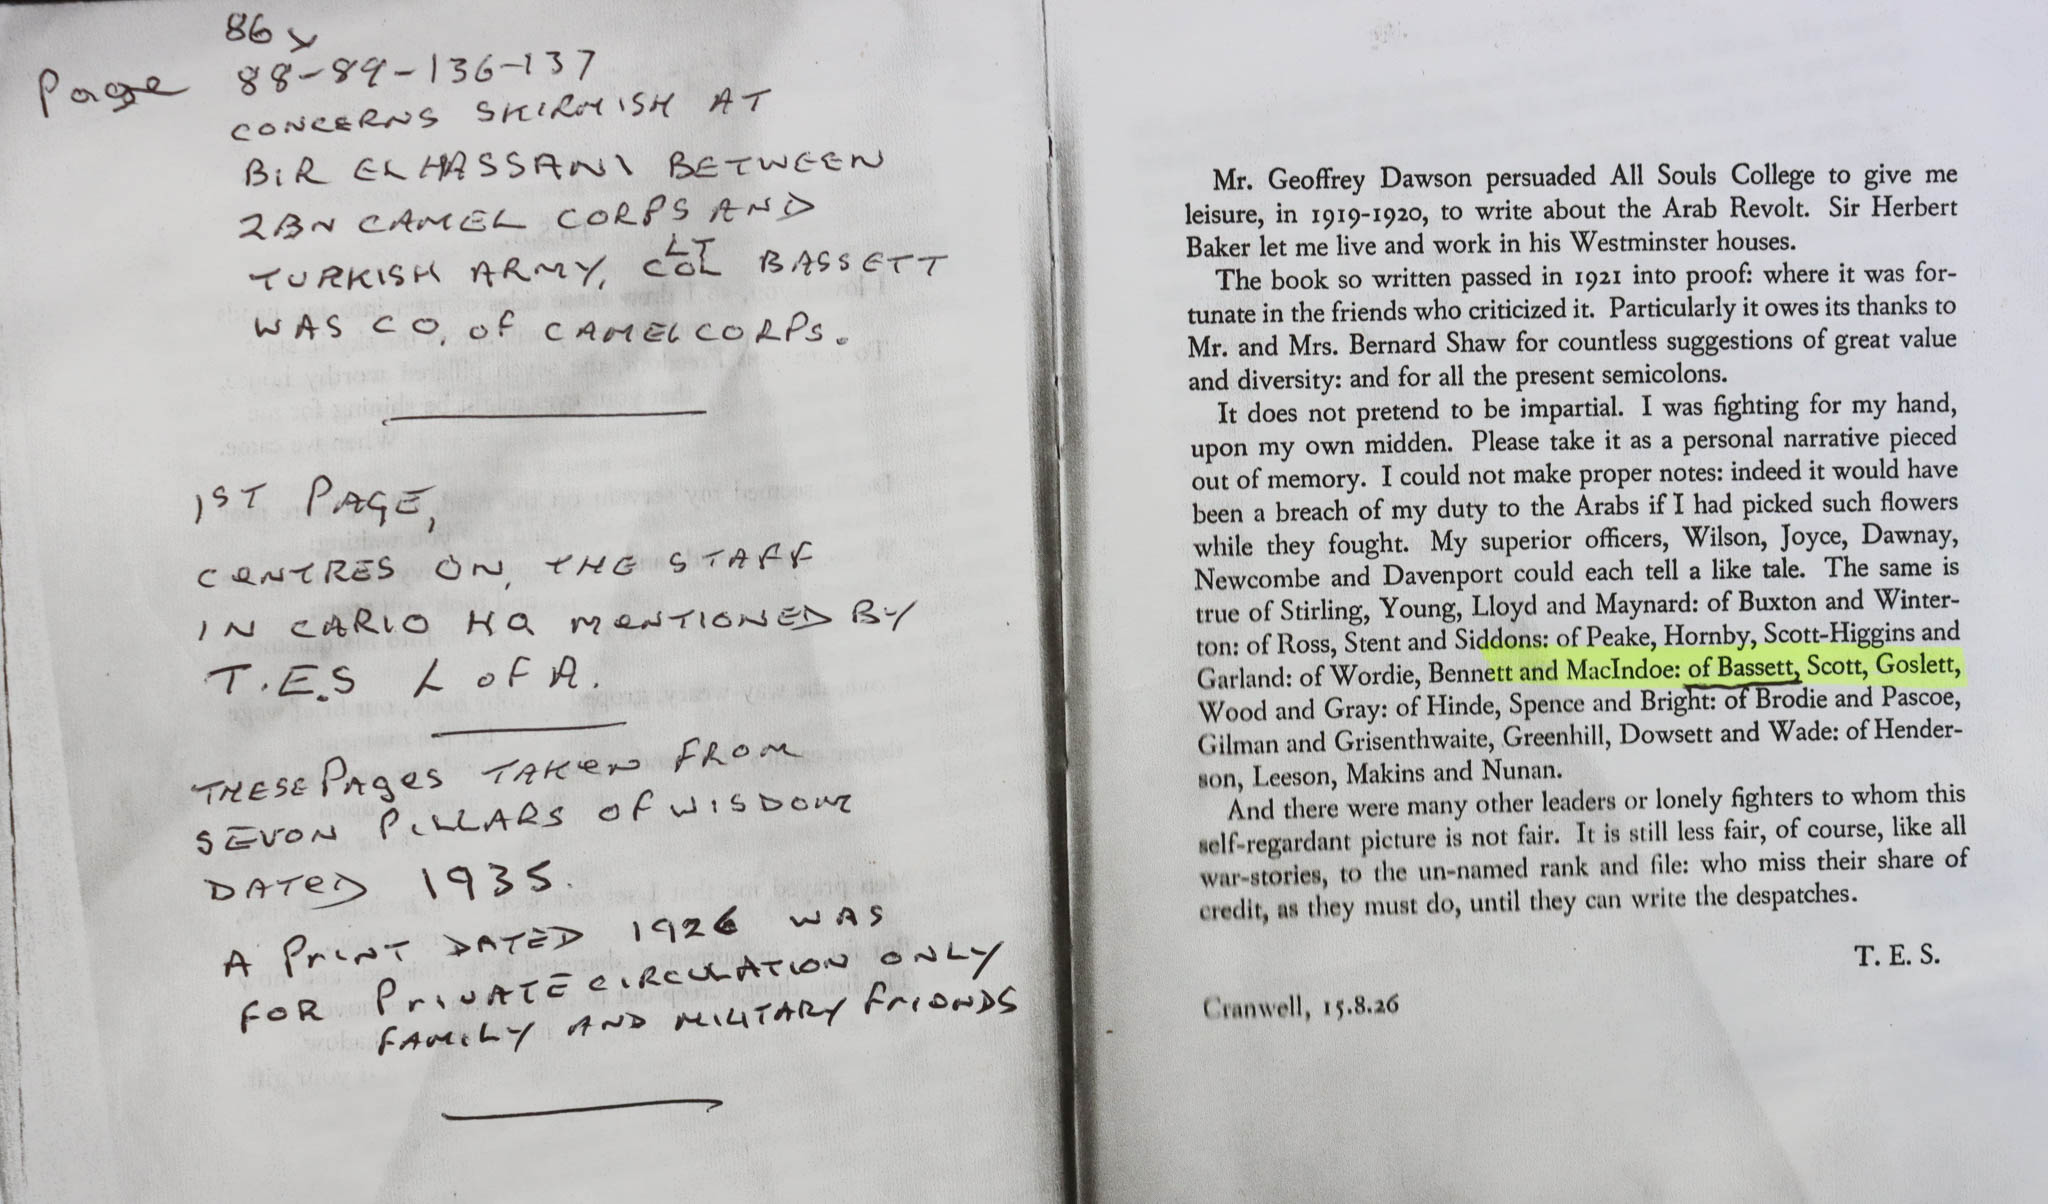 86 y
Page 88-89-136-137
CONCERNS SKIRMISH AT
BIR EL HASSANI BETWEEN
2BN CAMEL CORPS AND
TURKISH ARMY, LT COL BASSETT
WAS CO. OF CAMEL CORPS.
1ST PAGE,
CENTRES ON, THE STAFF
IN CARIO HQ MENTIONED BY
T.E.S L OF A.
THESE PAGES TAKEN FROM
SEVON PILLARS OF WISDOM
DATED 1935.
A PRINT DATED 1926 WAS
FOR PRIVATE CIRCULATION ONLY
FAMILY AND MILITARY FRIONDS
Mr. Geoffrey Dawson persuaded All Souls College to give me
leisure, in 1919-1920, to write about the Arab Revolt. Sir Herbert
Baker let me live and work in his Westminster houses.
The book so written passed in 1921 into proof: where it was for-
tunate in the friends who criticized it. Particularly it owes its thanks to
Mr. and Mrs. Bernard Shaw for countless suggestions of great value
and diversity: and for all the present semicolons.
It does not pretend to be impartial. I was fighting for my hand,
upon my own midden. Please take it as a personal narrative pieced
out of memory. I could not make proper notes: indeed it would have
been a breach of my duty to the Arabs if I had picked such flowers
while they fought. My superior officers, Wilson, Joyce, Dawnay,
Newcombe and Davenport could each tell a like tale. The same is
true of Stirling, Young, Lloyd and Maynard: of Buxton and Winter-
ton: of Ross, Stent and Siddons: of Peake, Hornby, Scott-Higgins and
Garland: of Wordie, Bennett and MacIndoe: of Bassett, Scott, Goslett,
Wood and Gray: of Hinde, Spence and Bright: of Brodie and Pascoe,
Gilman and Grisenthwaite, Greenhill, Dowsett and Wade: of Hender-
son, Leeson, Makins and Nunan.
And there were many other leaders or lonely fighters to whom this
self-regardant picture is not fair. It is still less fair, of course, like all
war-stories, to the un-named rank and file: who miss their share of
credit, as they must do, until they can write the despatches.
T. E. S.
Cranwell, 15.8.26